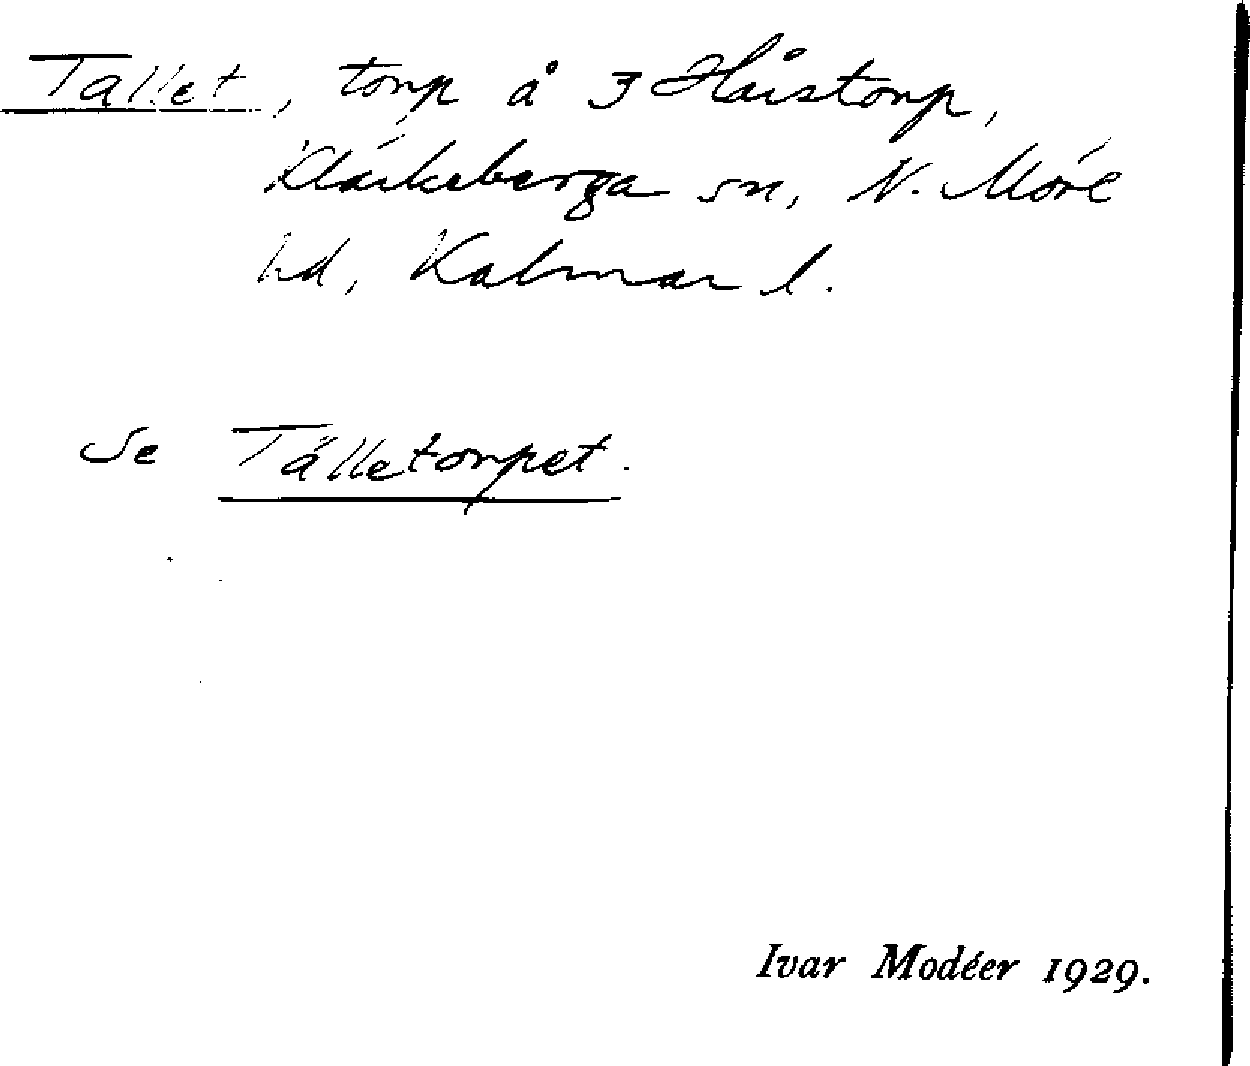 Tallet, torp å 3 Håstorp,
Kläckeberga sn, N. Möre
hd, Kalmar l.
Se Tälletorpet.
Ivar Modéer 1929.